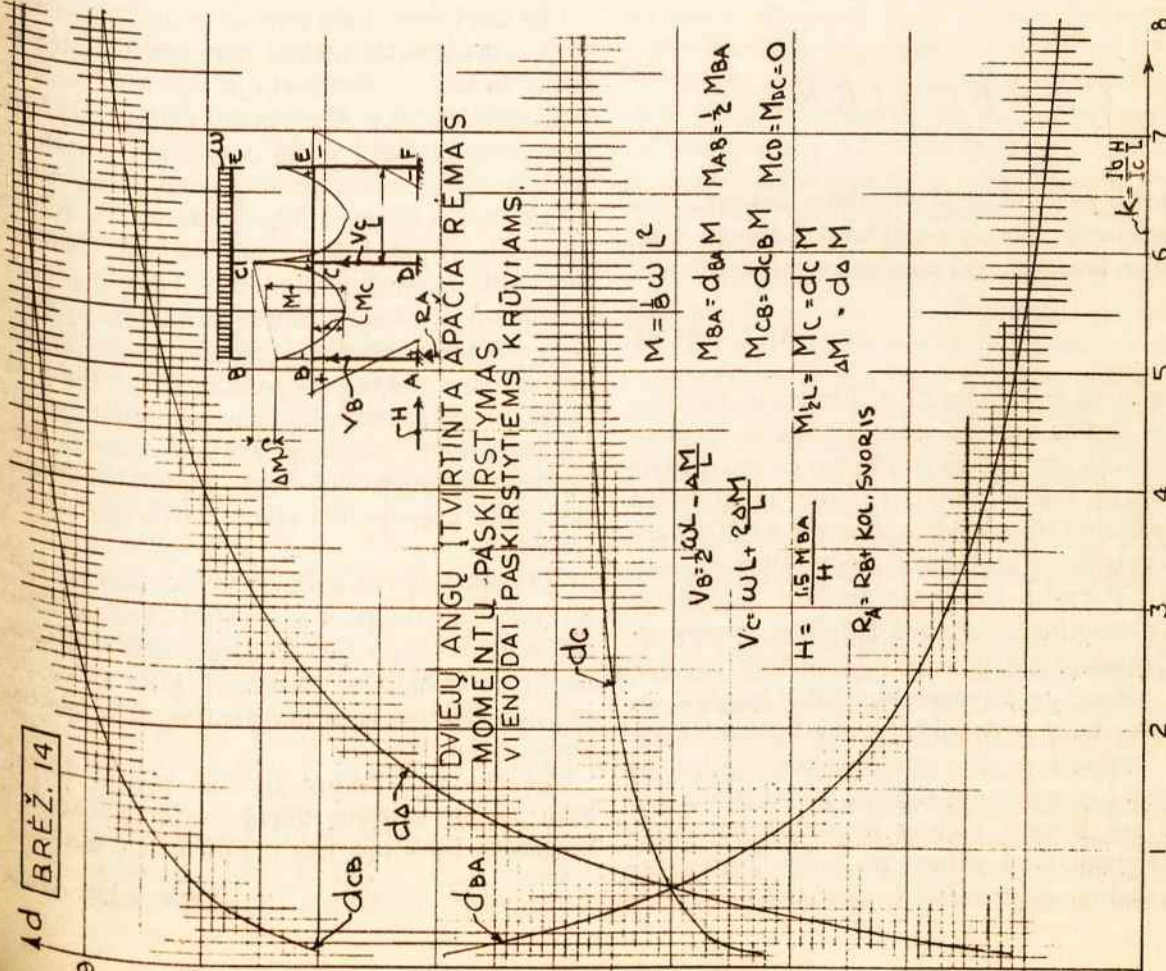 d
BRĖŽ. 14
dCB
dΔ
dBA
dC
ω
B C E
B C E
ΔM
M
MC
VB
VC
L
H
A RA D F
DVIEJŲ ANGŲ ĮTVIRTINTA APAČIA RĖMAS
MOMENTŲ PASKIRSTYMAS
VIENODAI PASKIRSTYTIEMS KRŪVIAMS.
M = 1/8 ω L²
MBA = dBA M MAB = 1/2 MBA
MCB = dCB M MCD = MDC = 0
M½L = MC = dC M
ΔM = dΔ M
VB = 1/2 ωL - ΔM/L
VC = ωL + 2ΔM/L
H = 1.5 MBA/H
RA = RB + KOL. SVORIS
1 2 3 4 5 6 7 8
K = Ib H/Ic L